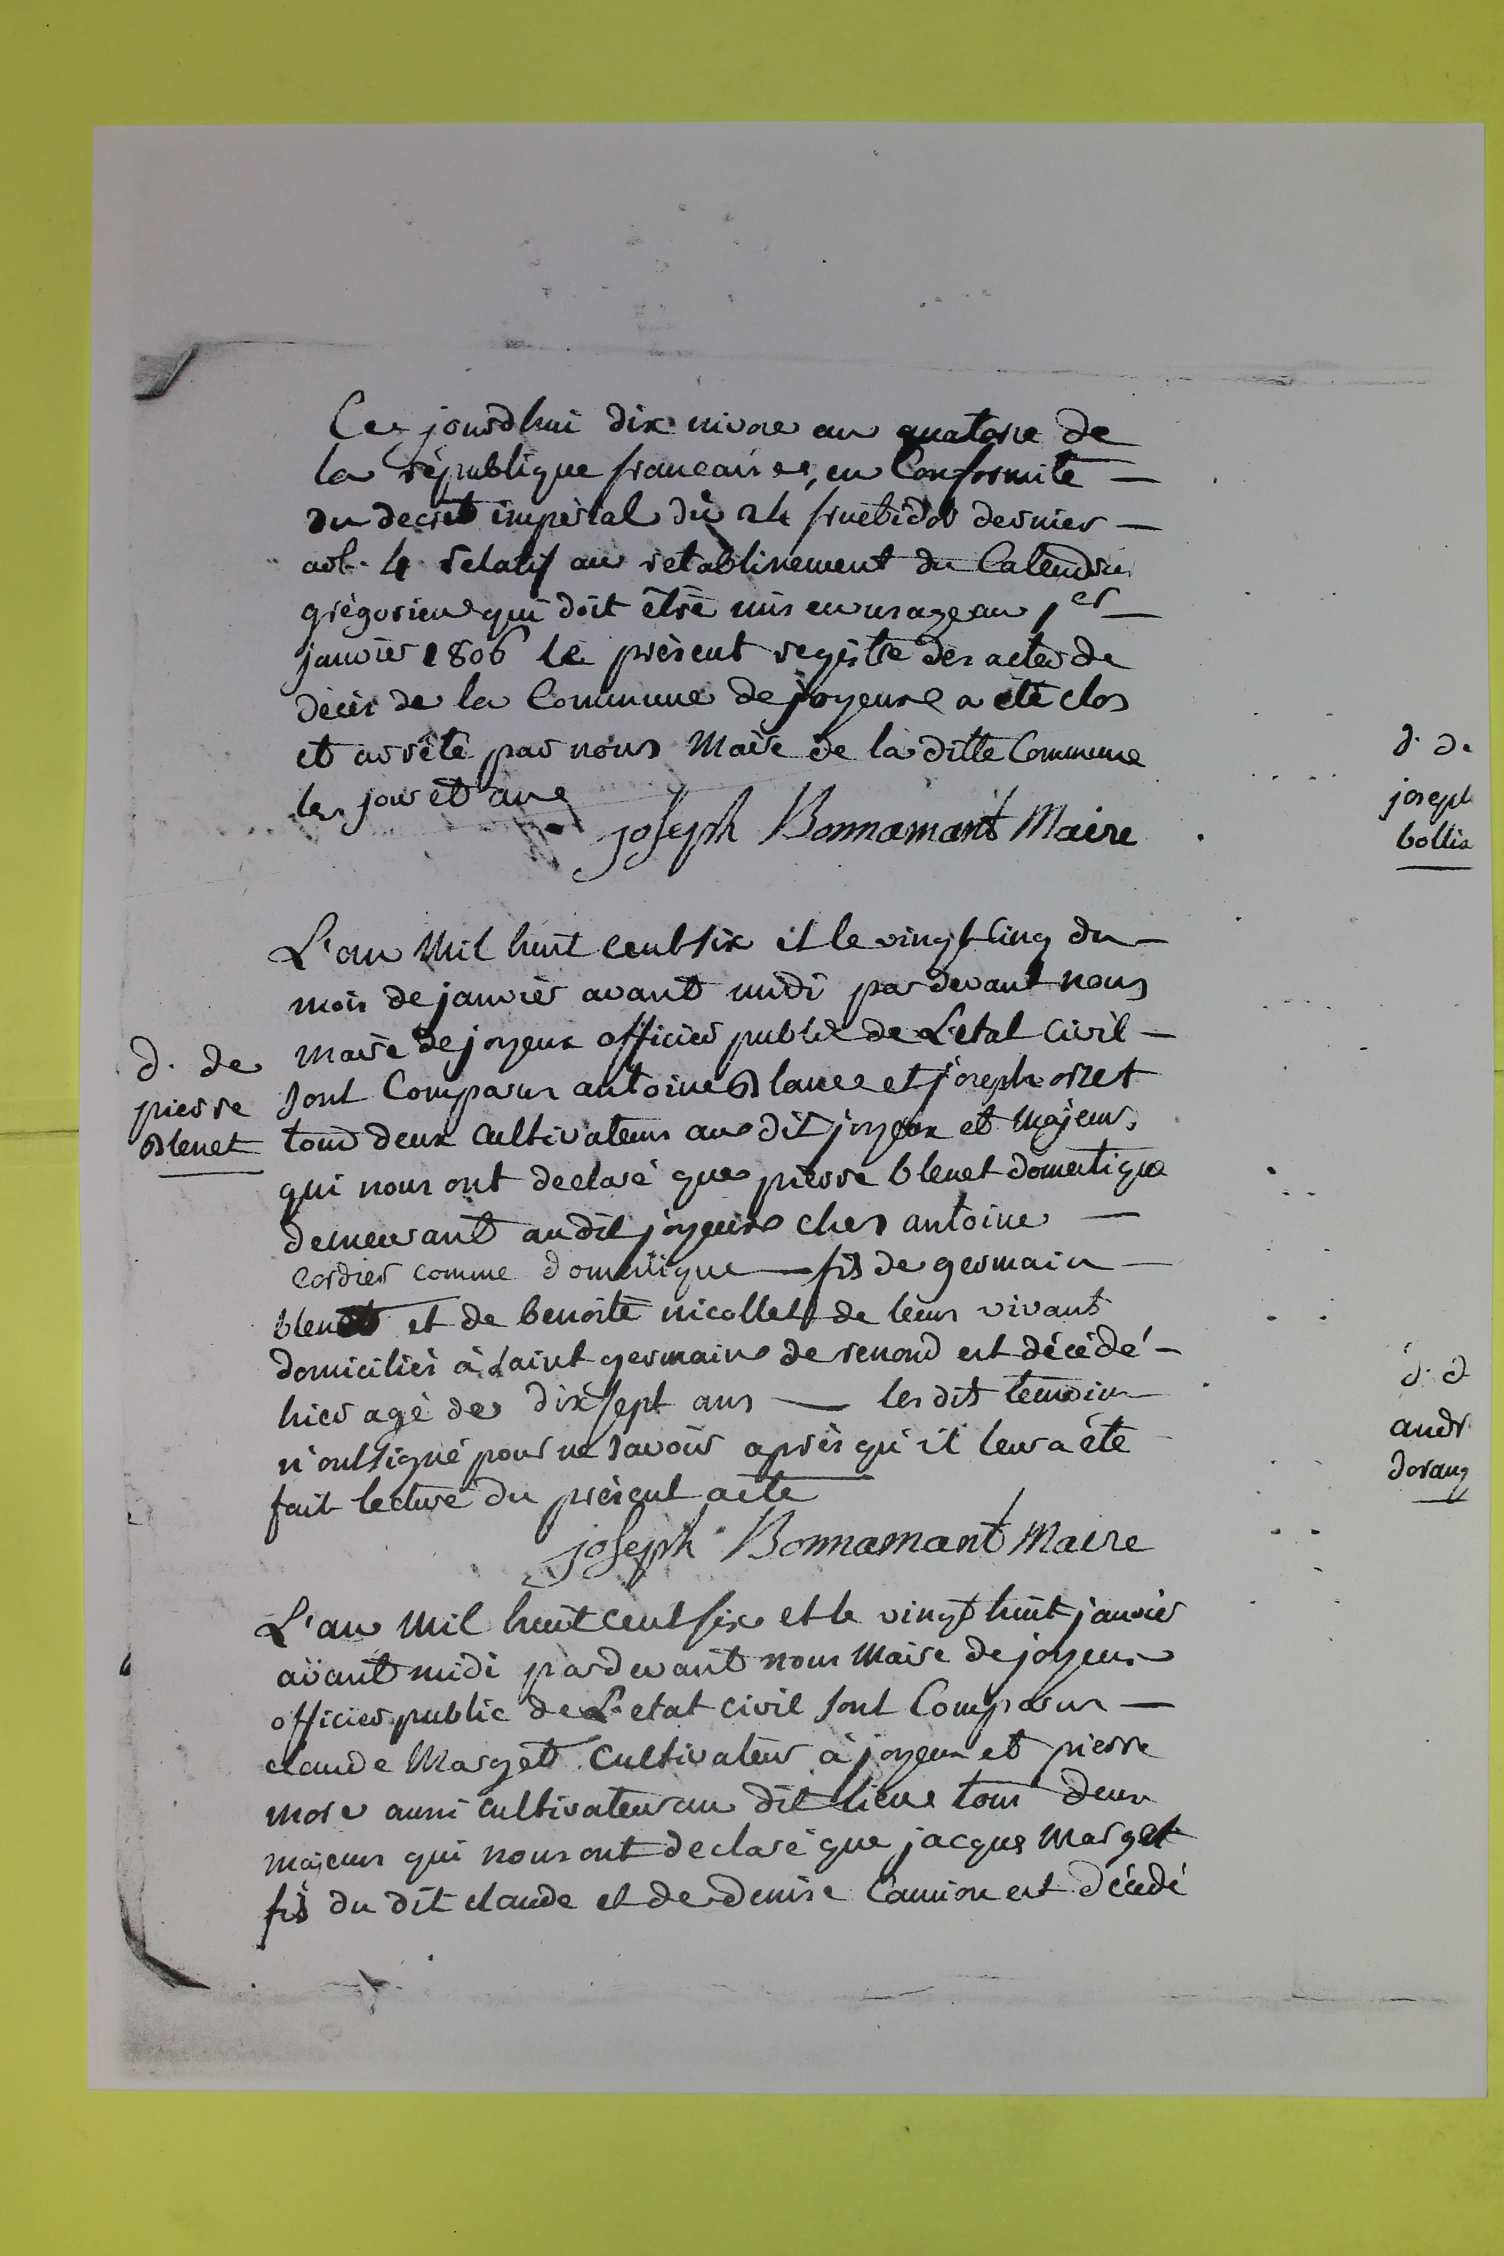 Ce jourdhui dix nivose an quatorze de
la république française, en Conformité
du decret impérial du 24 fructidor dernier
art. 4 relatif au retablissement du Calendrier
grégorien qui doit être mis en usage au 1er
janvier 1806 le présent registre des actes de
décès de la Commune de joyeux a été clos
et arrêté par nous Maire de la ditte Commune
les jour et an
joseph Bonnamant Maire
L'an Mil huit cent six et le vingt cinq du
mois de janvier avant midi par devant nous
maire de joyeux officier public de L'etat Civil
sont Comparus antoine Blanc et joseph orset
tous deux cultivateurs au dit joyeux et Majeurs
qui nous ont declaré que pierre blenet domestique
demeurant audit joyeux ches antoine
Cordier comme domestique fils de germain
blenet et de benoite nicollet de leurs vivants
domiciliés à saint germain de renond est décédé
hier agé de dix sept ans les dits temoins
n'ont signé pour ne savoir après qu'il leur a été
fait lecture du présent acte
joseph Bonnamant Maire
L'an Mil huit cent six et le vingt huit janvier
avant midi pardevant nous Maire de joyeux
officier public de L'etat civil sont Comparus
claude Marget Cultivateur à joyeux et pierre
more aussi cultivateur au dit lieu tous deux
majeurs qui nous ont declaré que jacques Marget
fils du dit claude et de denise Camion est décédé
d. de
pierre
Blenet
d. de
joseph
bollia
d. d
andr